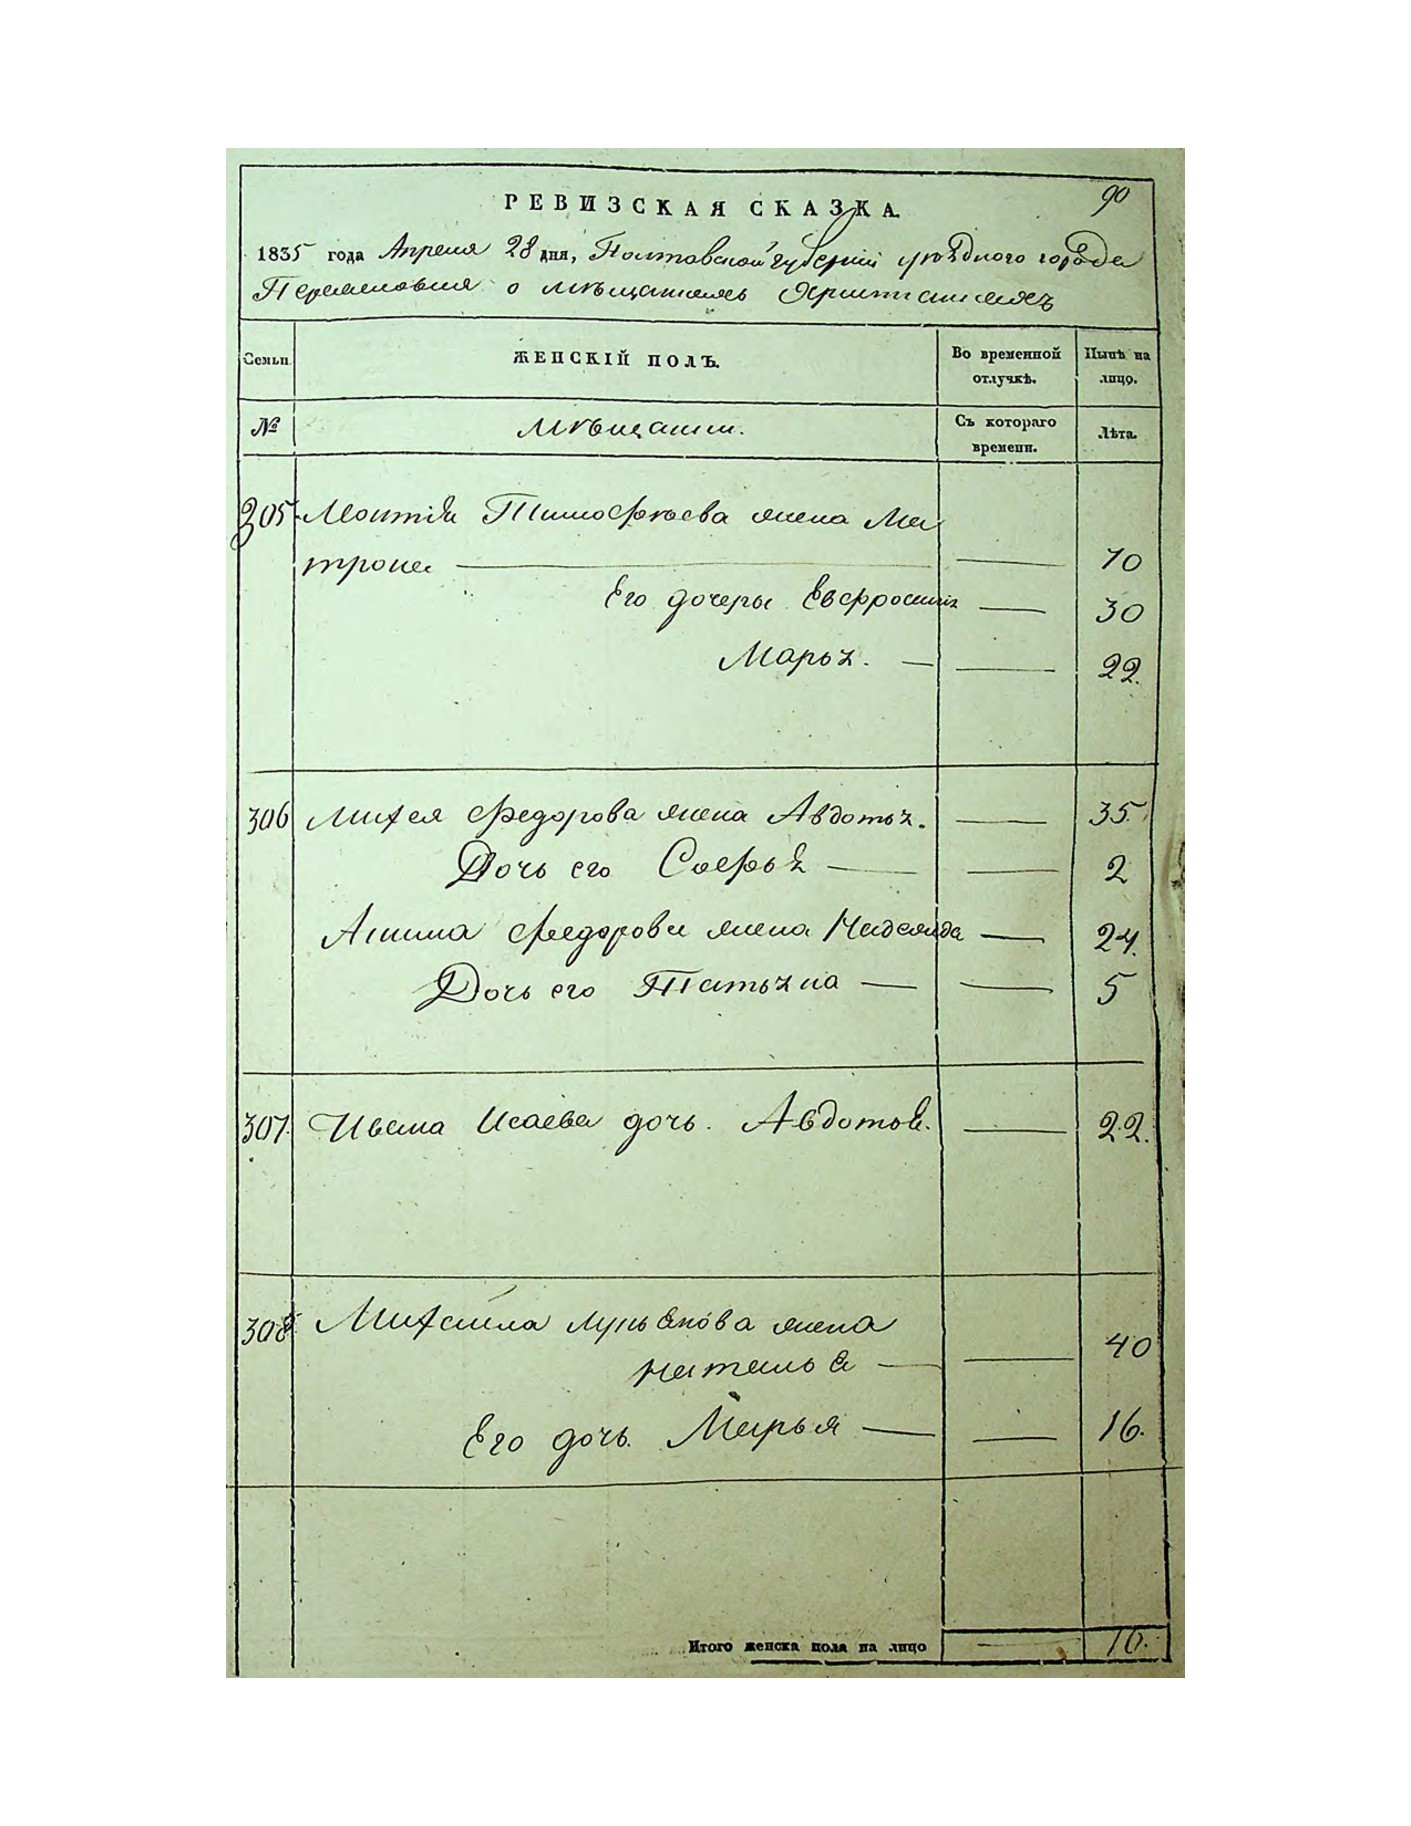 90
РЕВИЗСКАЯ СКАЗКА.
1835 года Апреля 28 дня, Полтавской губерніи уѣзднаго города
Переяслова о мѣщанахъ Христианахъ
Семьи. ЖЕНСКІЙ ПОЛЪ. Во временной отлучкѣ. Нынѣ на лицо.
№ Мѣщане. Съ котораго времени. Лѣта.
305 Тимофѣева жена Ма
трона — — 70
Его дочеры Евфросинія — 30
Марья. — — 22.
306 Михея Федорова жена Авдотья. — 35.
Дочь его Софья — — 2
Акима Федорова жена Надежда — 24.
Дочь его Татьяна — — 5
307. Ивана Исаева дочь. Авдотья. — 22.
308 Михаила Лукьянова жена
Наталья — — 40
Его дочь. Марья — — 16.
Итого женска пола на лицо — 10.